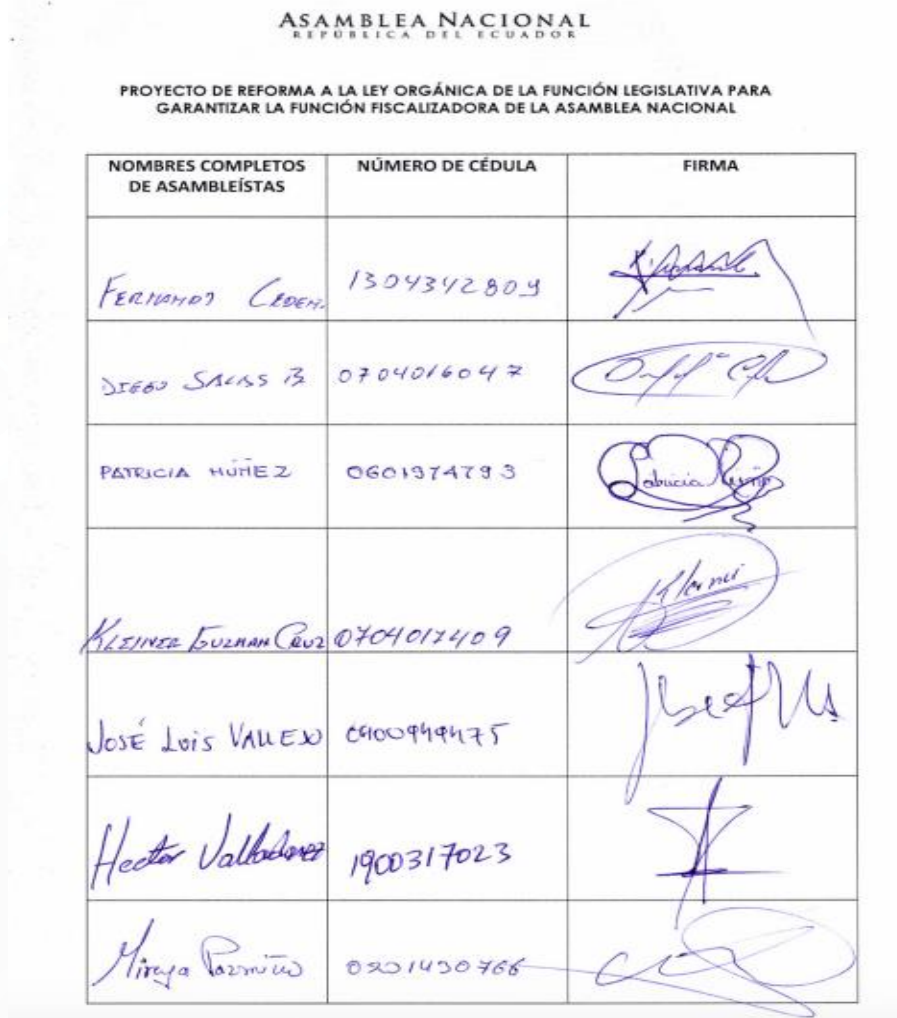 ASAMBLEA NACIONAL
REPÚBLICA DEL ECUADOR
PROYECTO DE REFORMA A LA LEY ORGÁNICA DE LA FUNCIÓN LEGISLATIVA PARA
GARANTIZAR LA FUNCIÓN FISCALIZADORA DE LA ASAMBLEA NACIONAL
NOMBRES COMPLETOS DE ASAMBLEÍSTAS NÚMERO DE CÉDULA FIRMA
FERNANDO CEDEÑ. 1304342809
DIEGO SALAS B 0704016047
PATRICIA NÚÑEZ 0601974793 Patricia Nuñez
KLEINER GUZMAN CRUZ 0704017409 Kleiner
JOSÉ LUIS VALLEJO 0400949475
Hector Valladarez 1900317023
Mireya Pazmiño 0201430766